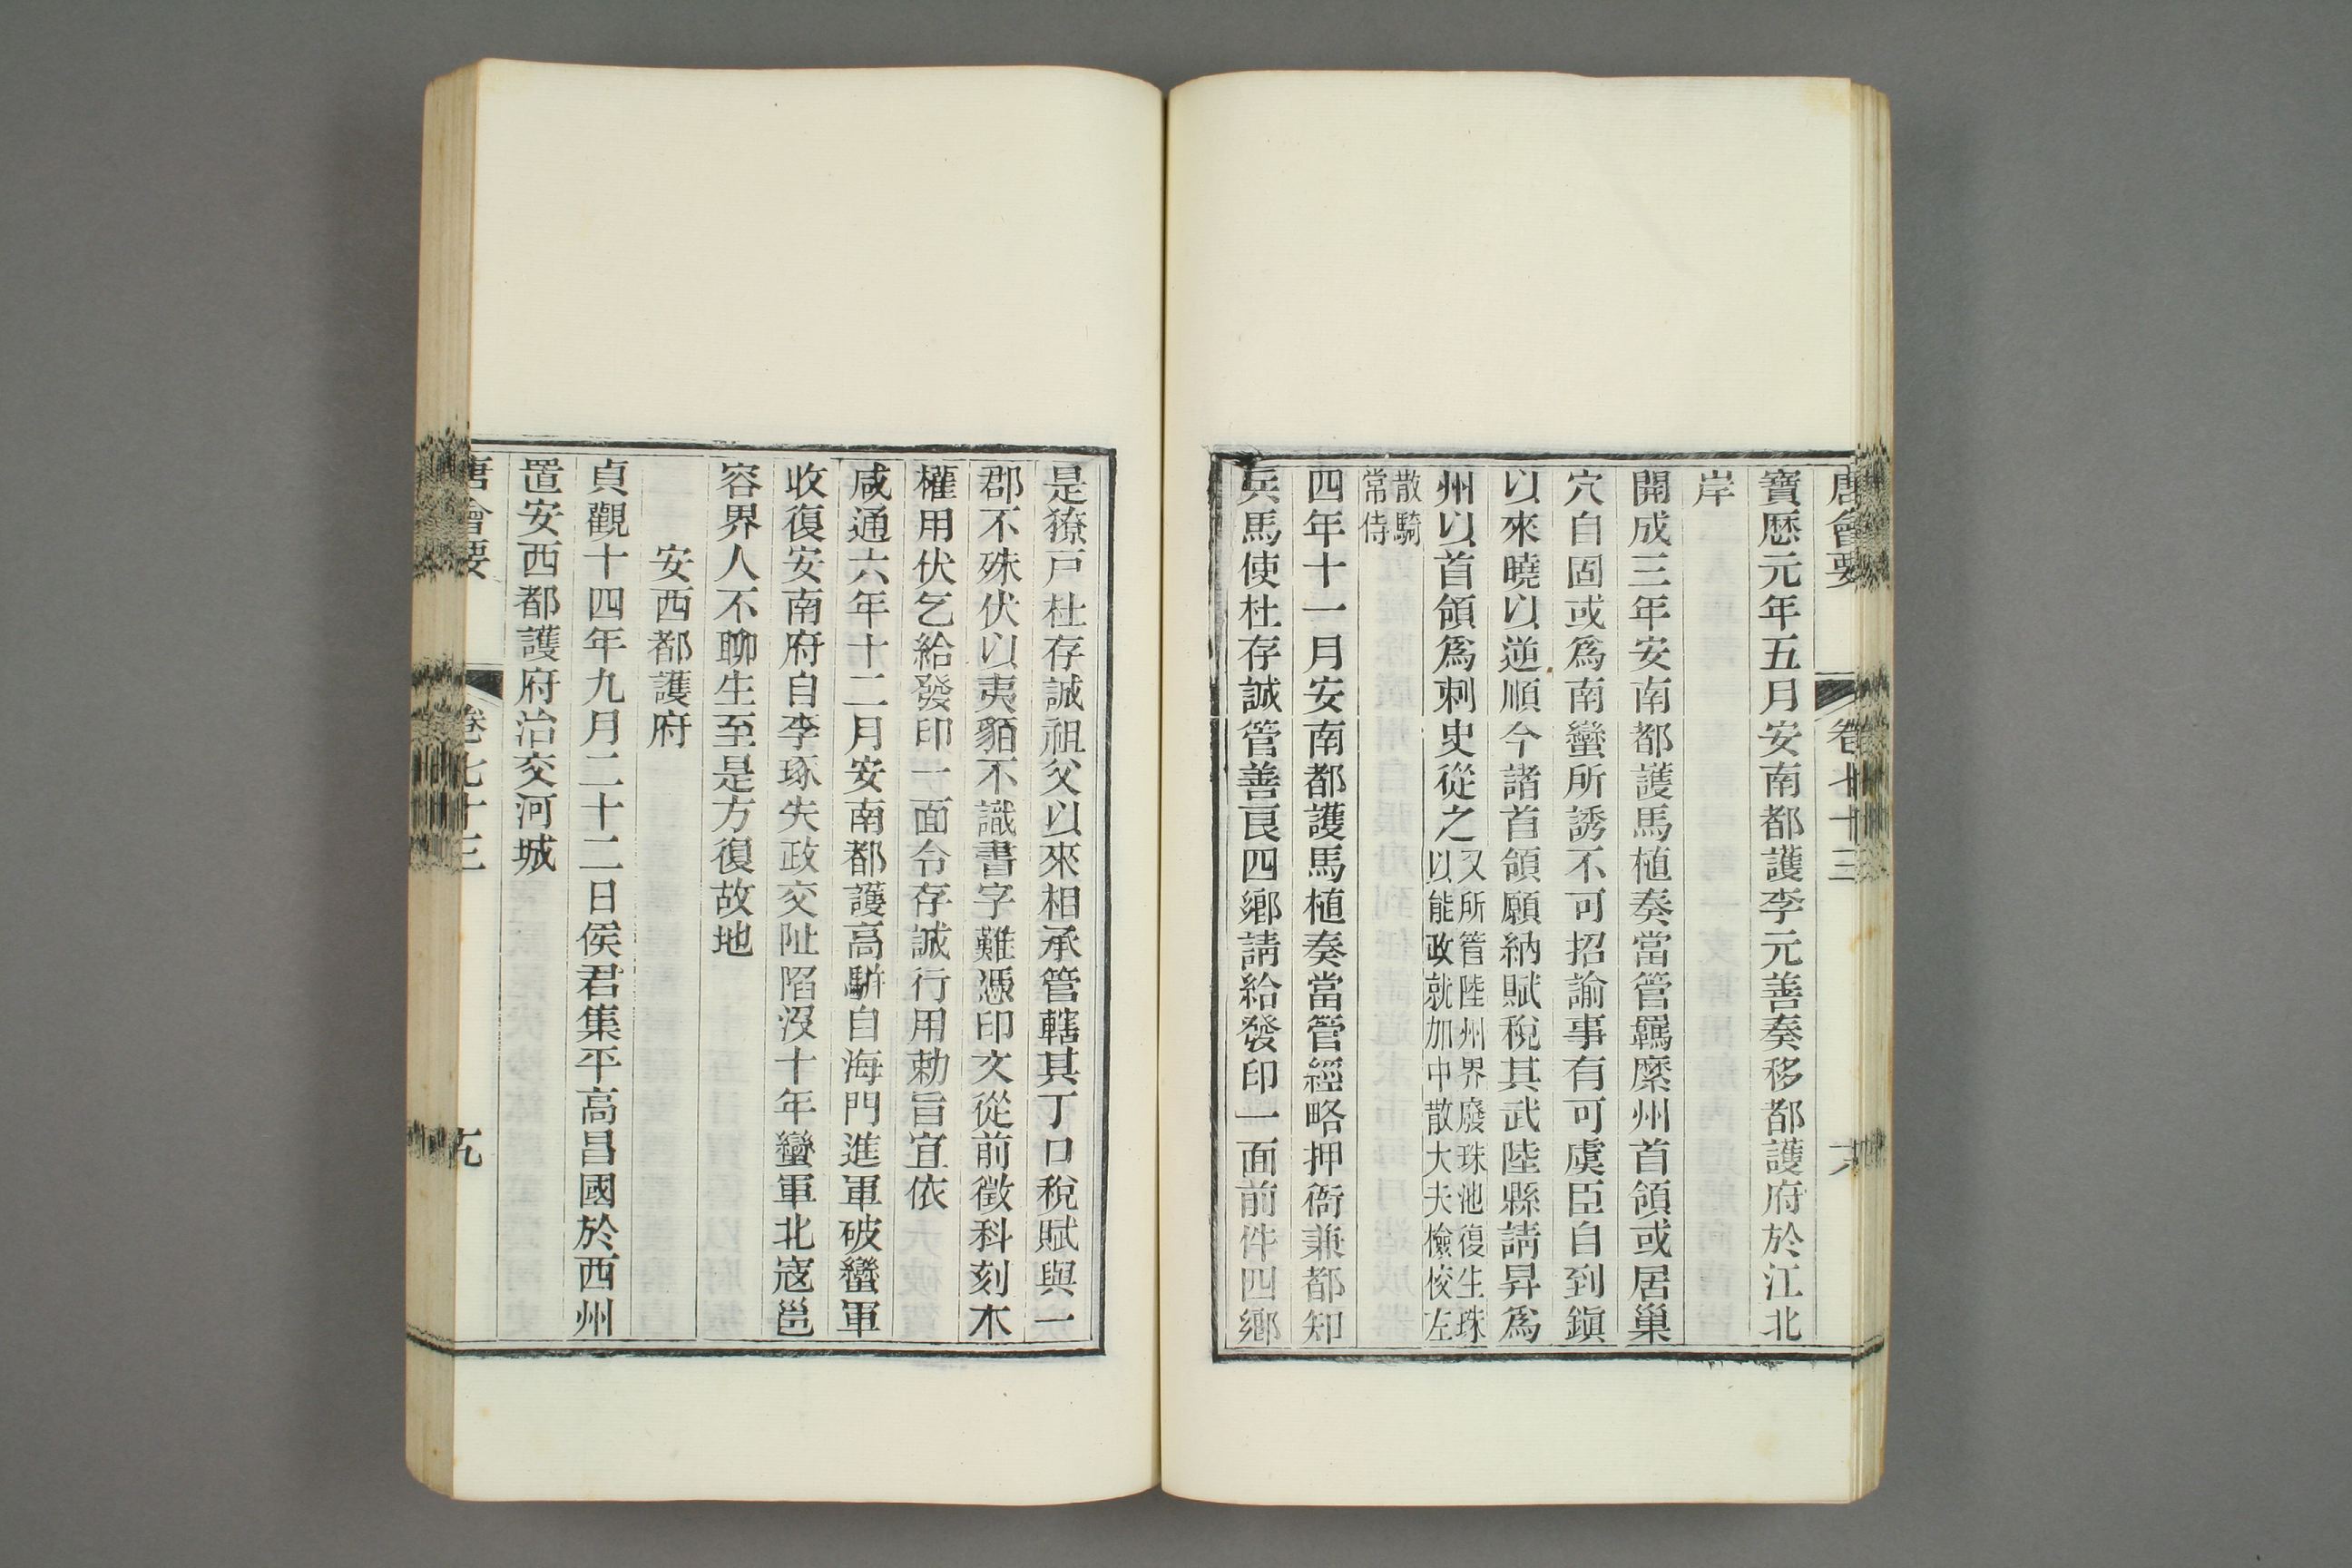 唐會要 卷七十三
寶歷元年五月安南都護李元善奏移都護府於江北
岸
開成三年安南都護馬植奏當管羈縻州首領或居巢
穴自固或爲南蠻所誘不可招諭事有可虞臣自到鎭
以來曉以逆順今諸首領願納賦稅其武陸縣請昇爲
州以首領爲刺史從之
又所管陸州界廢珠池復生珠
以能政就加中散大夫檢校左
散騎
常侍
四年十一月安南都護馬植奏當管經略押衙兼都知
兵馬使杜存誠管善良四鄉請給發印一面前件四鄉
是獠戸杜存誠祖父以來相承管轄其丁口稅賦與一
郡不殊伏以夷貊不識書字難憑印文從前徵科刻木
權用伏乞給發印一面令存誠行用勅旨宜依
咸通六年十二月安南都護高駢自海門進軍破蠻軍
收復安南府自李琢失政交阯陷沒十年蠻軍北寇邕
容界人不聊生至是方復故地
安西都護府
貞觀十四年九月二十二日侯君集平高昌國於西州
置安西都護府治交河城
唐會要 卷七十三 九